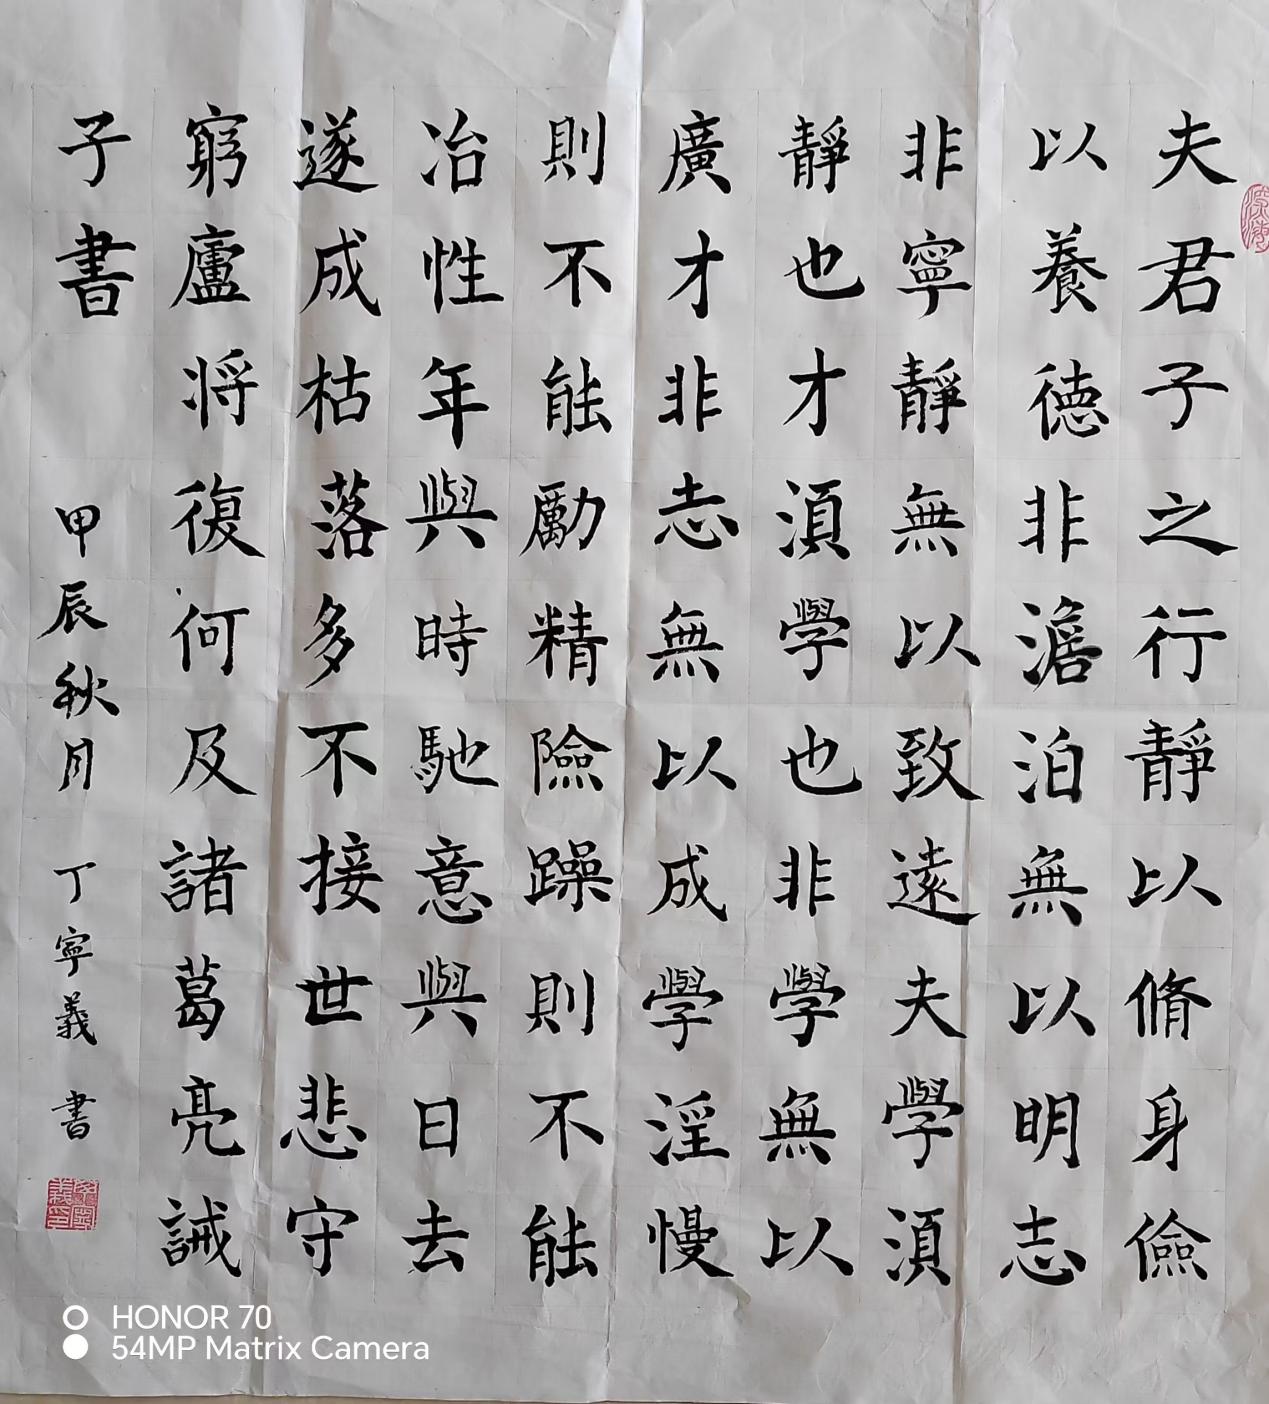 夫君子之行靜以脩身儉
以養德非澹泊無以明志
非寧靜無以致遠夫學須
靜也才須學也非學無以
廣才非志無以成學淫慢
則不能勵精險躁則不能
冶性年與時馳意與日去
遂成枯落多不接世悲守
窮廬将復何及諸葛亮誡
子書
甲辰秋月 丁寧義 書
HONOR 70
54MP Matrix Camera